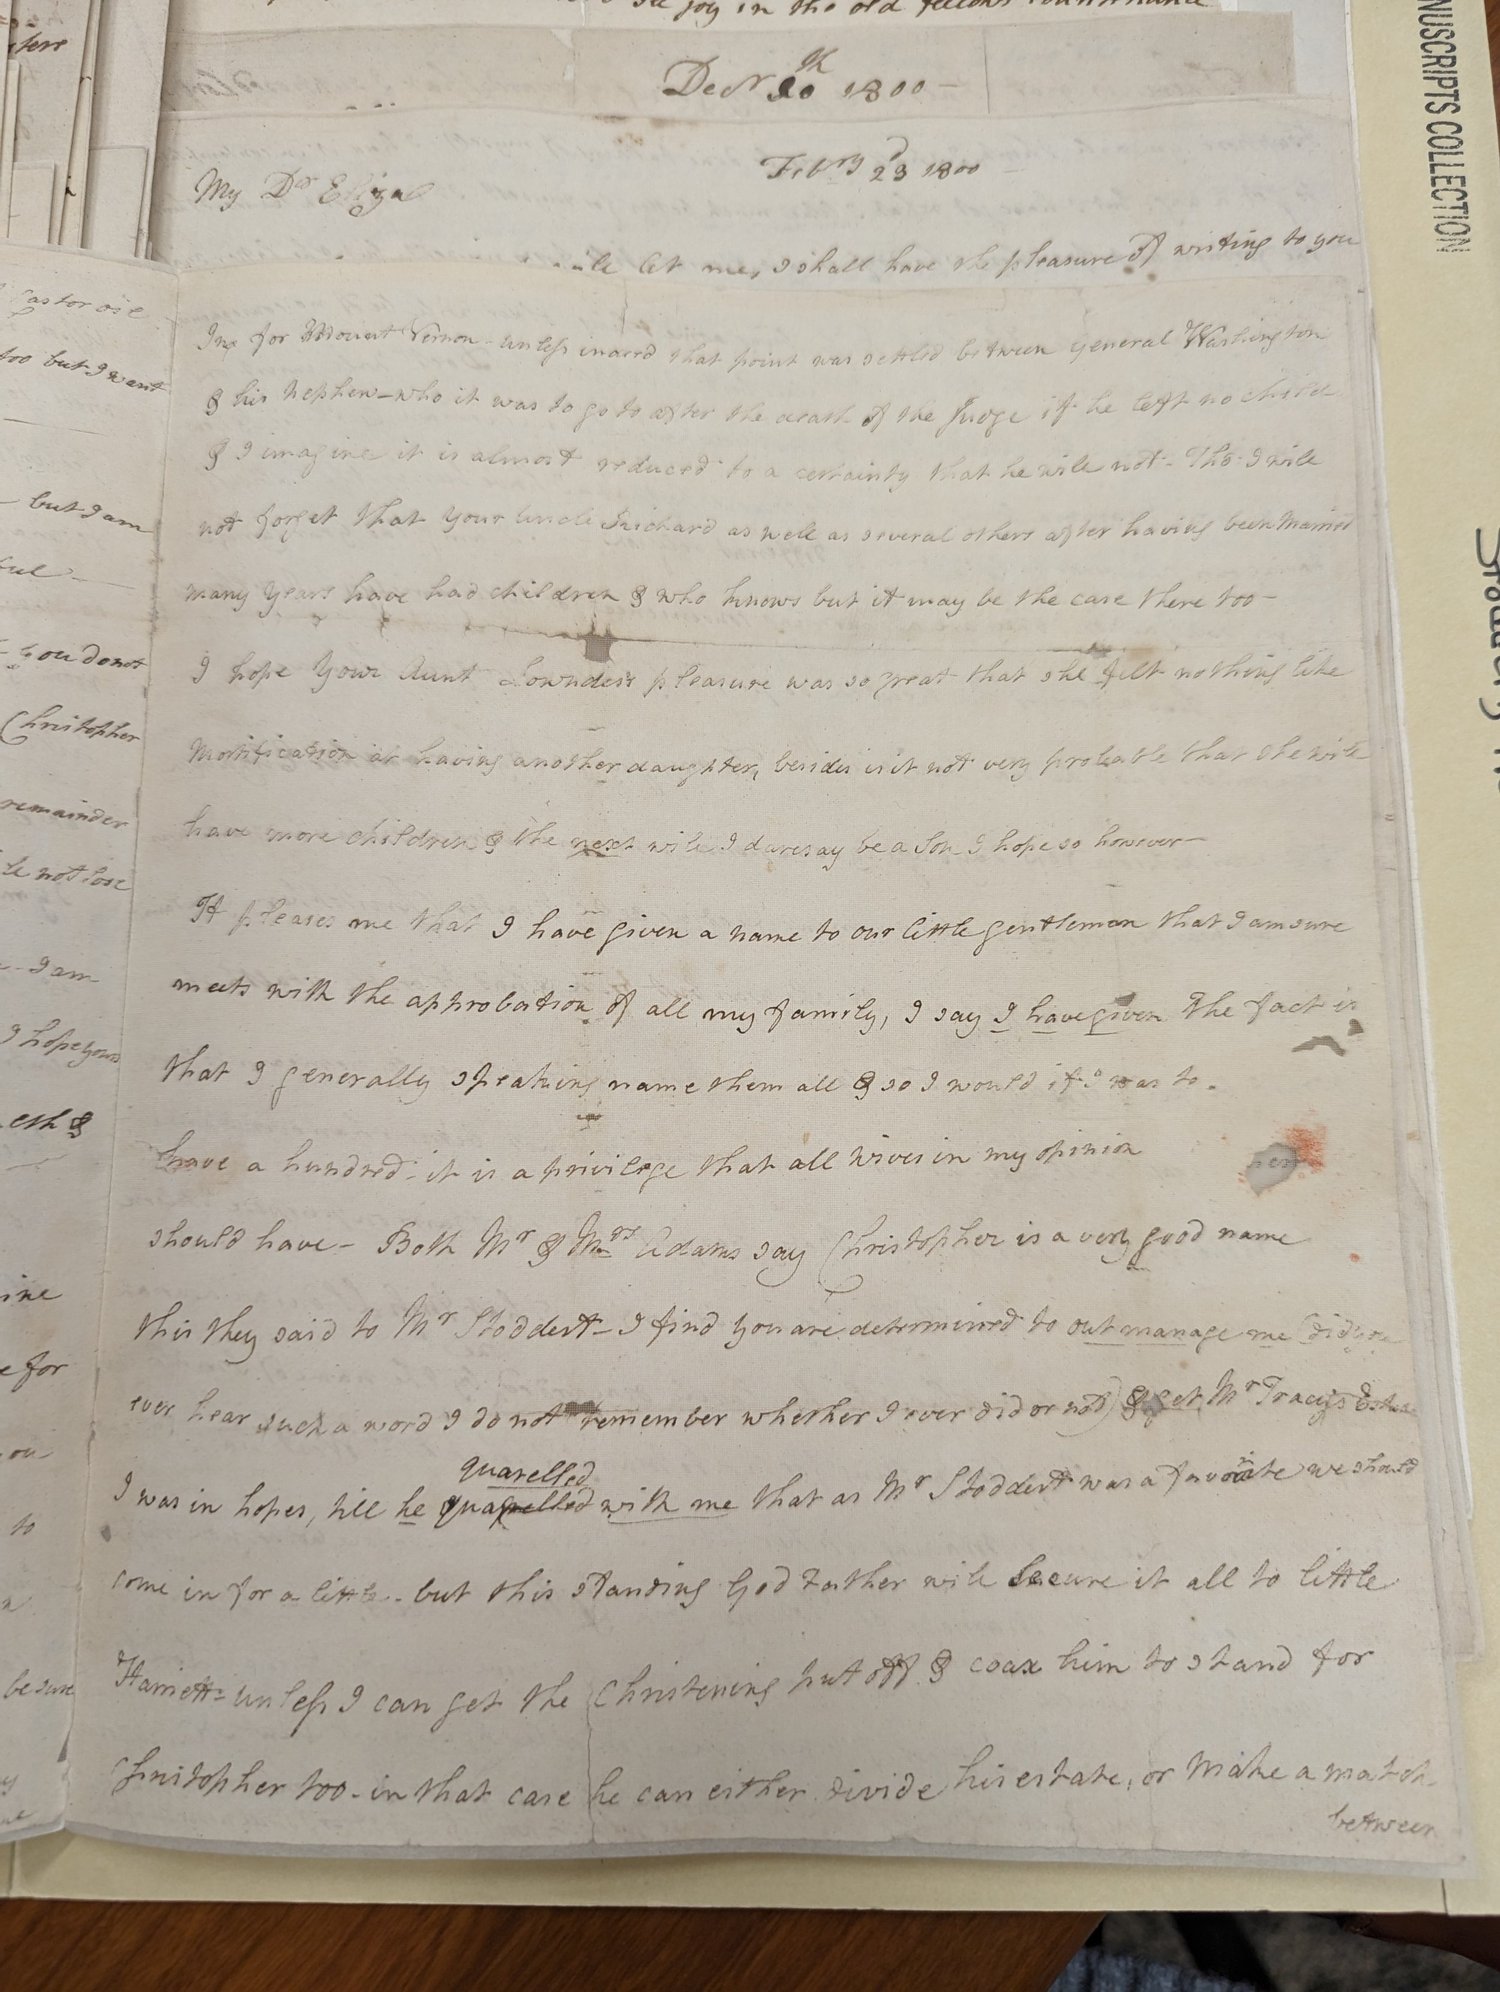 see joy in the old fellows countenance
Decr 20th 1800 —
Febry 23d 1800 —
My Dr Eliza
let me, I shall have the pleasure of writing to you
for Mount Vernon - unless indeed that point was settled between General Washington
& his Nephew - who it was to go to after the death of the Judge if he left no child -
& I imagine it is almost reduced to a certainty that he will not - Tho- I will
not forget that your Uncle Richard as well as several others after having been Married
many years have had children & who knows but it may be the case there too -
I hope your Aunt Lowndes's pleasure was so great that she felt nothing like
Mortification at having another daughter, besides is it not very probable that she will
have more children & the next will I daresay be a Son I hope so however -
It pleases me that I have given a name to our little gentleman that I am sure
meets with the approbation of all my family, I say I have given The fact is
that I generally speaking name them all & so I would if I was to
have a hundred - it is a privilege that all wives in my opinion
should have - Both Mr & Mrs Adams say Christopher is a very good name
this they said to Mr Stoddert - I find you are determined to out manage me (did you
ever hear such a word I do not remember whether I ever did or not) & get Mr Tracy's Estate
quarelled
I was in hopes, till he quarrelled with me that as Mr Stoddert was a favorite we should
come in for a little - but this standing God Father will secure it all to little
Harriett - unless I can get the Christening put off & coax him to stand for
Christopher too - in that case he can either divide his estate, or make a match -
between
castor oil
too but I want
- but I am
you do not
Christopher
remainder
not lose
- I am
I hope yours
&
for
to
be sure
MANUSCRIPTS COLLECTION